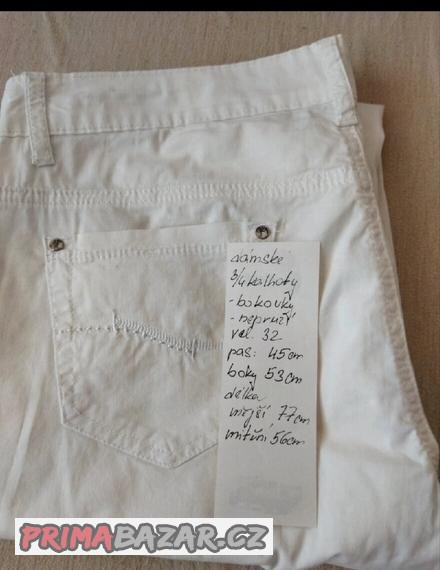 dámské
3/4 kalhoty
- bokovky
- nepruží
vel. 32
pas: 45cm
boky 53cm
délka
vnější 77cm
vnitřní 56cm
PRIMABAZAR.CZ